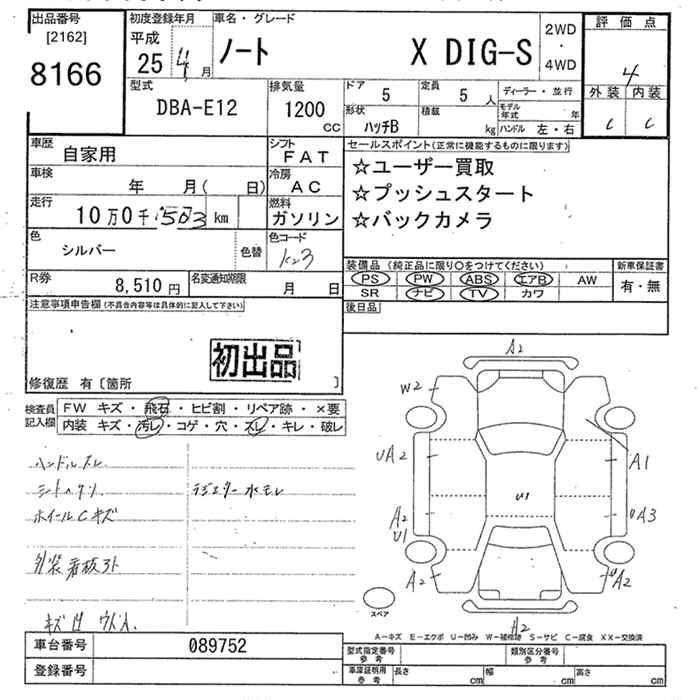 出品番号
[2162]
8166
初度登録年月
平成
25 4 月
車名・グレード
ノート X DIG-S
2WD
・
4WD
評価点
4
外装 内装
C C
型式
DBA-E12
排気量
1200
CC
ドア
5
定員
5 人
形状
ハッチB
積載
kg
ディーラー・並行
モデル年式 年
ハンドル 左・右
車歴
自家用
シフト
FAT
車検
年 月( 日)
冷房
AC
走行
10万0千503 km
燃料
ガソリン
色
シルバー
色替
色コード
K23
R券
8,510円
名変通知期限
月 日
セールスポイント(正常に機能するものに限ります)
☆ユーザー買取
☆プッシュスタート
☆バックカメラ
装備品(純正品に限り○をつけてください)
PS PW ABS エアB AW
SR ナビ TV カワ
新車保証書
有・無
後日品
注意事項申告欄(不具合内容等は具体的に記入して下さい)
初出品
修復歴 有〔箇所 〕
検査員記入欄
FW キズ・飛石・ヒビ割・リペア跡・×要
内装 キズ・汚レ・コゲ・穴・スレ・キレ・破レ
ハンドルスレ
シートヘタリ
ラジエター水モレ
ホイールCキズ
外装看板3ト
キズ凹 ウスA
A2
W2
UA2
A1
U1
A2
U1
UA3
A2
UA2
スペア
A2
A-キズ E-エクボ U-凹み W-補修跡 S-サビ C-腐食 XX-交換済
車台番号
089752
登録番号
型式指定番号
参考
類別区分番号
参考
車庫証明用
参考
長さ cm
幅 cm
高さ cm